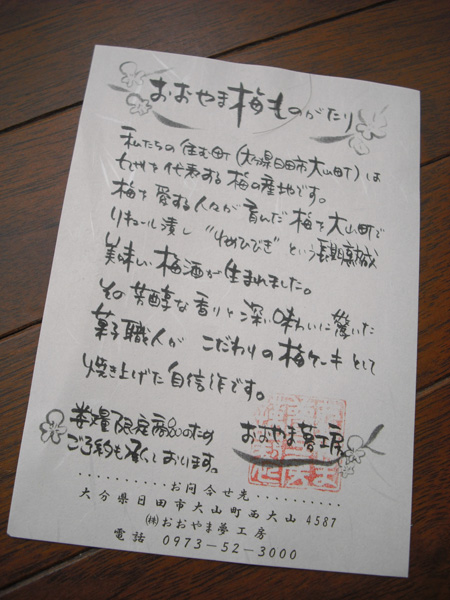 おおやま梅ものがたり
私たちの住む町(大分県日田市大山町)は
九州を代表する梅の産地です。
梅を愛する人々が育んだ梅を大山町で
リキュール漬し "ゆめひびき" という長期熟成
美味しい梅酒が生まれました。
その芳醇な香りと深い味わいに驚いた
菓子職人が こだわりの梅ケーキとして
焼き上げた自信作です。
数量限定商品のため
ご予約も承っております。
おおやま夢工房
お問合せ先
大分県日田市大山町西大山4587
㈱おおやま夢工房
電話 0973-52-3000